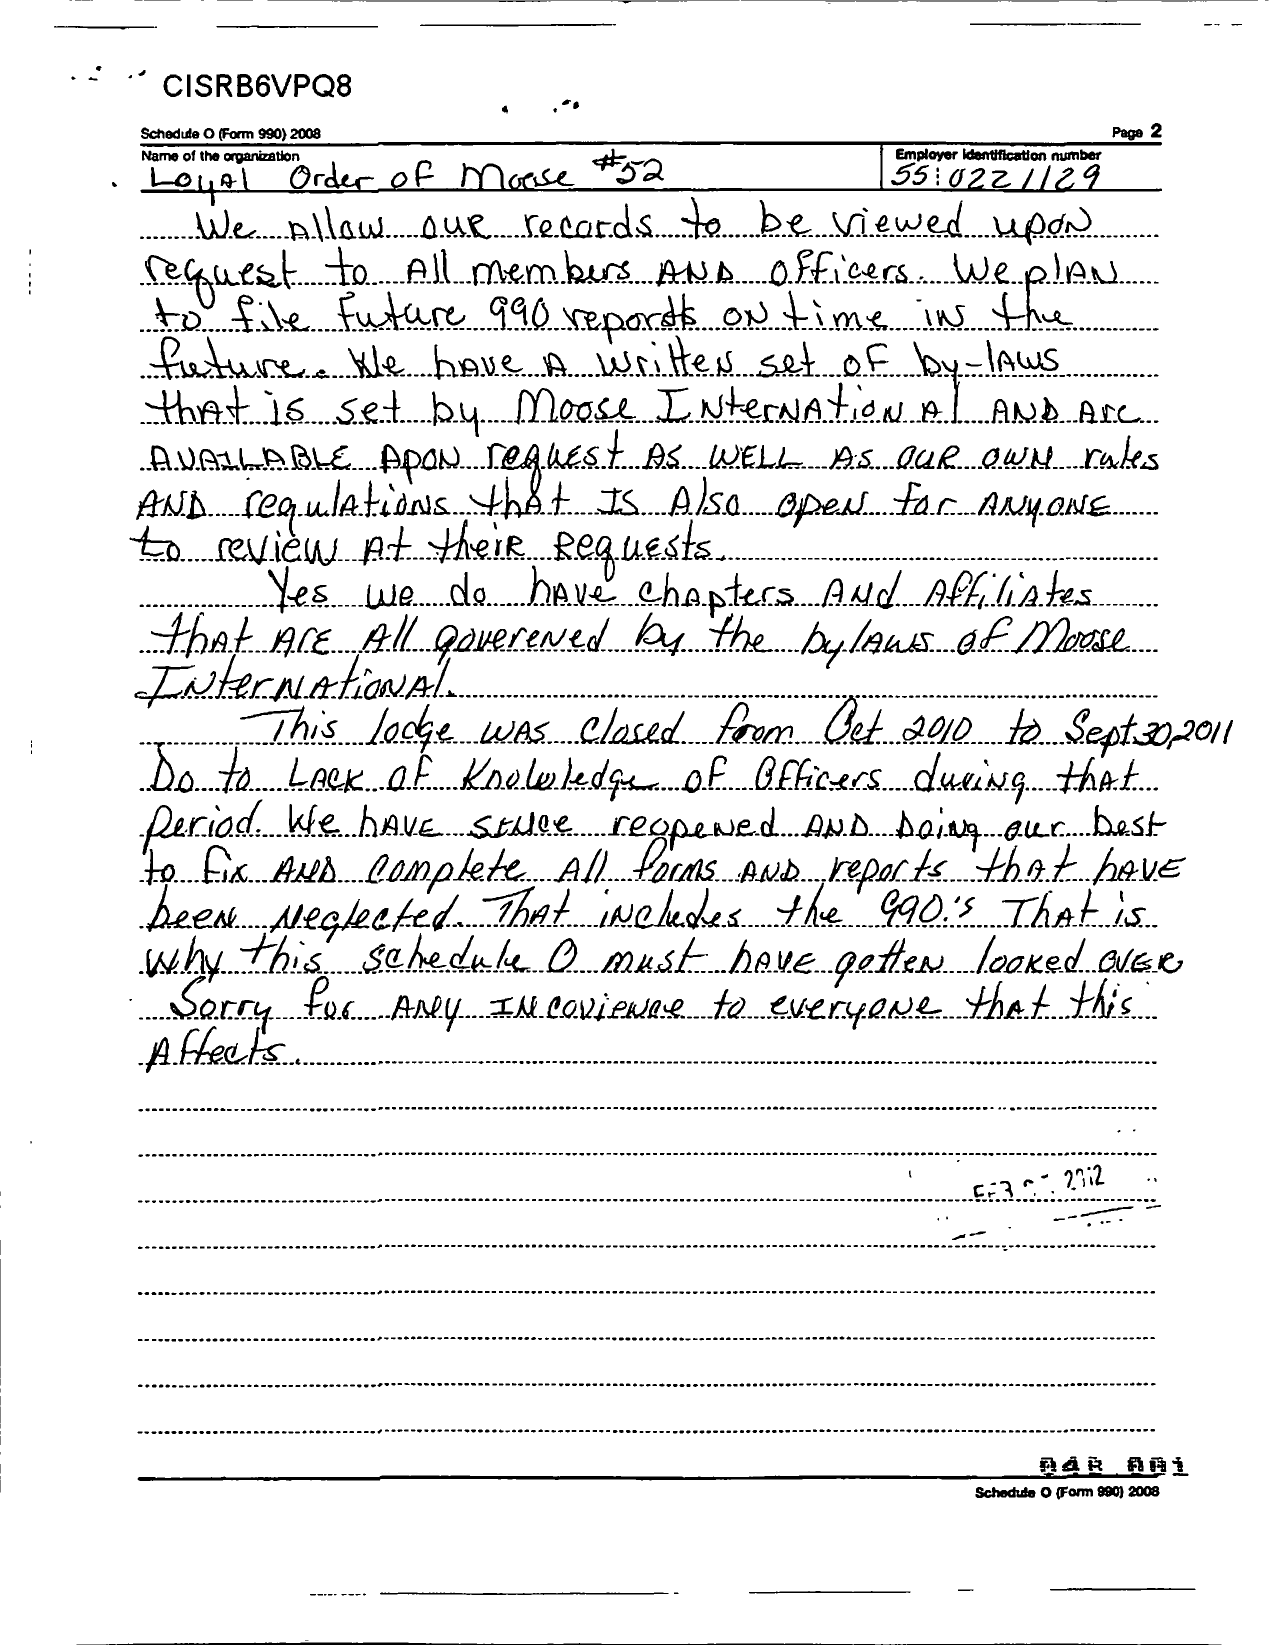 CISRB6VPQ8
Schedule O (Form 990) 2008 Page 2
Name of the organization Employer identification number
Loyal Order of Moose #52 55:0221129
We Allow our records to be viewed upon
request to All members AND officers. We plAN
to file future 990 reports on time in the
future. We have A written set of by-laws
that is set by Moose International AND Are
AVAILABLE Apon request As WELL As our own rules
AND regulations that Is Also open for Anyone
to review At their Requests.
Yes we do have chapters And Affiliates
that Are All goverened by the bylaws of Moose
International.
This lodge was closed from Oct 2010 to Sept 30, 2011
Do to Lack of Knowledge of Officers during that
period. We have since reopened AND Doing our best
to fix AND complete All forms AND reports that have
been Neglected. That includes the 990.'s That is
why this schedule O must have gotten looked over
Sorry for Any Incovience to everyone that this
Affects.
2012
Schedule O (Form 990) 2008